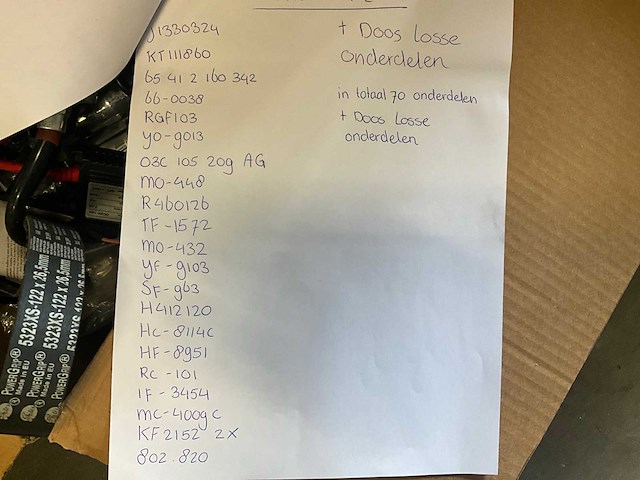 J1330324
KT111860
65 41 2 160 342
66-0038
RGF103
YO-9013
03C 105 209 AG
MO-448
R46012b
TF-1572
MO-432
YF-9103
SF-963
H412120
HC-8114C
HF-8951
RC-101
IF-3454
MC-4009C
KF2152 2X
802.820
+ Doos Losse
onderdelen
in totaal 70 onderdelen
+ Doos Losse
onderdelen
5323XS-122 x 26,5mm
5323XS-122 x 26,5mm
5323XS-122 x 26,5mm
POWERGRIP®
Made in EU
POWERGRIP®
Made in EU
POWERGRIP®